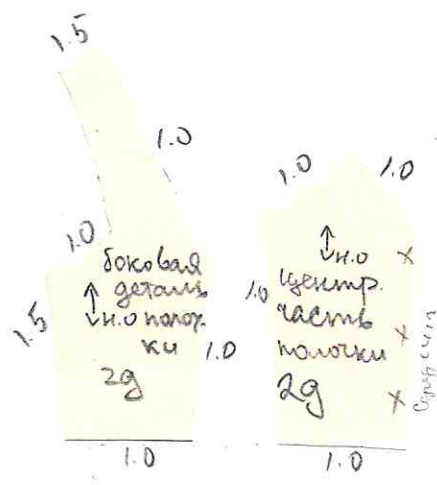 1.5
1.0
1.0
1.5
боковая
деталь
н.о полоч-
ки
2д
1.0
1.0
1.0
1.0
н.о
центр.
часть
полочки
2д
1.0
1.0